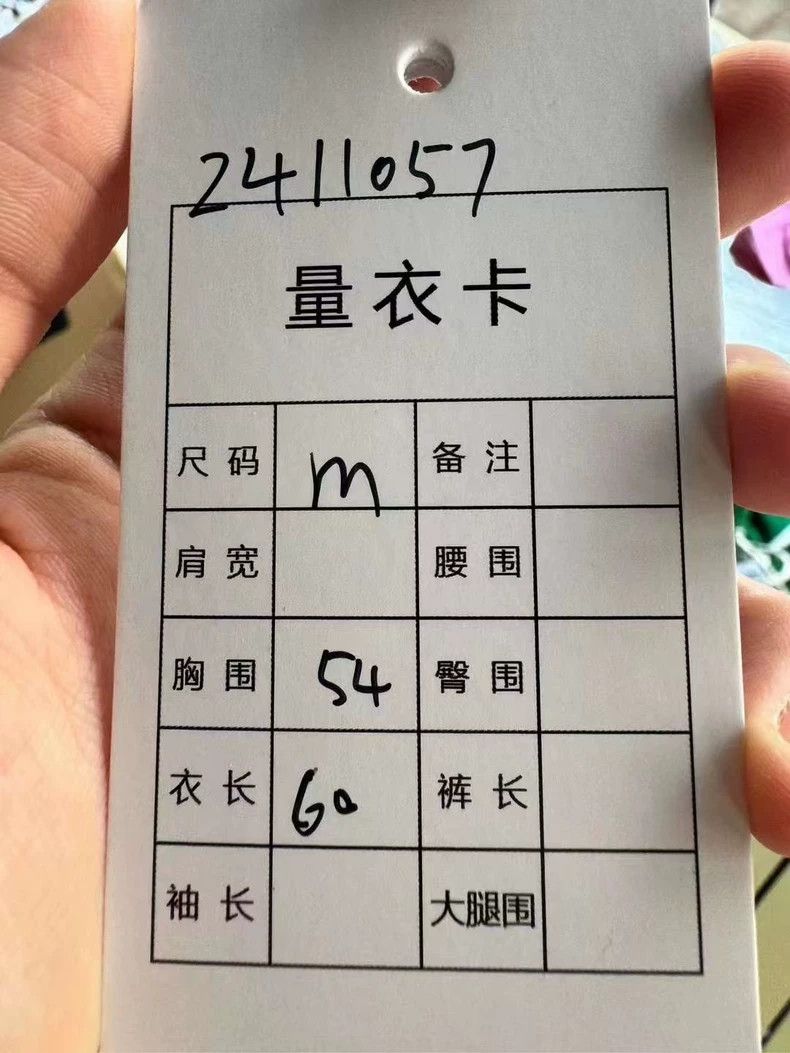 2411057
量衣卡
尺码 m 备注
肩宽 腰围
胸围 54 臀围
衣长 60 裤长
袖长 大腿围